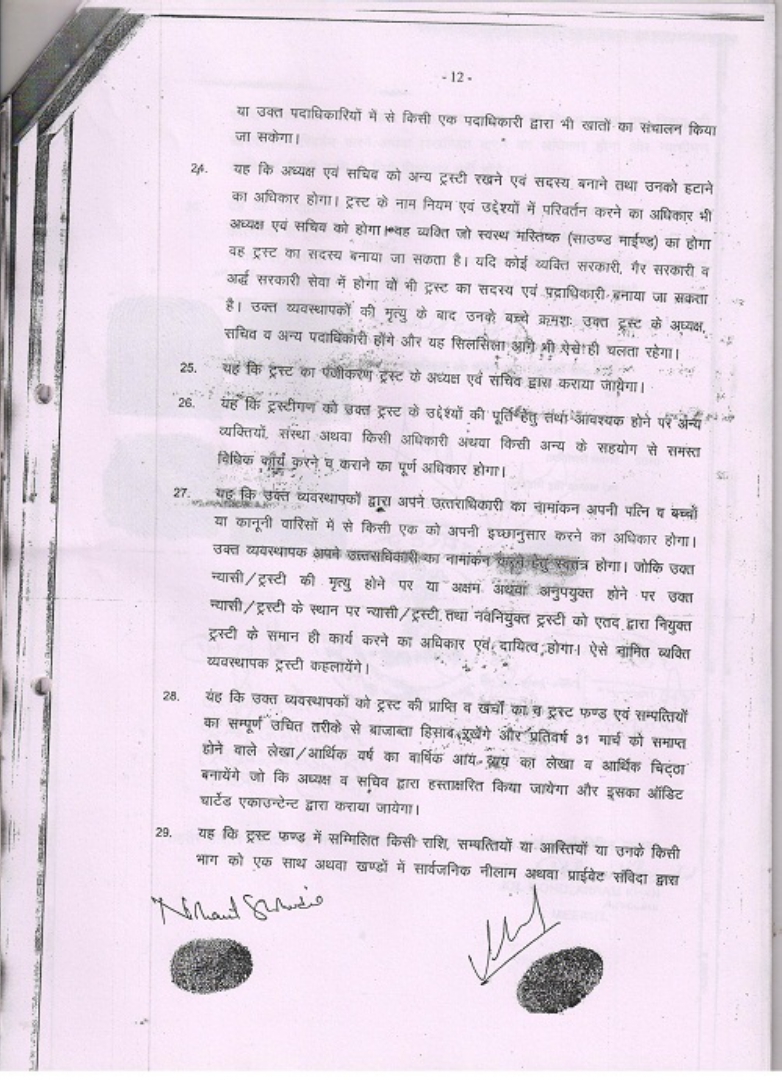 - 12 -
या उक्त पदाधिकारियों में से किसी एक पदाधिकारी द्वारा भी खातों का संचालन किया
जा सकेगा।
24. यह कि अध्यक्ष एवं सचिव को अन्य ट्रस्टी रखने एवं सदस्य बनाने तथा उनको हटाने
का अधिकार होगा। ट्रस्ट के नाम नियम एवं उद्देश्यों में परिवर्तन करने का अधिकार भी
अध्यक्ष एवं सचिव को होगा। वह व्यक्ति जो स्वस्थ मस्तिष्क (साउण्ड माईण्ड) का होगा
वह ट्रस्ट का सदस्य बनाया जा सकता है। यदि कोई व्यक्ति सरकारी, गैर सरकारी व
अर्द्ध सरकारी सेवा में होगा वो भी ट्रस्ट का सदस्य एवं पदाधिकारी बनाया जा सकता
है। उक्त व्यवस्थापकों की मृत्यु के बाद उनके बच्चे क्रमशः उक्त ट्रस्ट के अध्यक्ष,
सचिव व अन्य पदाधिकारी होंगे और यह सिलसिला आगे भी ऐसे ही चलता रहेगा।
25. यह कि ट्रस्ट का पंजीकरण ट्रस्ट के अध्यक्ष एवं सचिव द्वारा कराया जायेगा।
26. यह कि ट्रस्टीगण को उक्त ट्रस्ट के उद्देश्यों की पूर्ति हेतु तथा आवश्यक होने पर अन्य
व्यक्तियों, संस्था अथवा किसी अधिकारी अथवा किसी अन्य के सहयोग से समस्त
विधिक कार्य करने व कराने का पूर्ण अधिकार होगा।
27. यह कि उक्त व्यवस्थापकों द्वारा अपने उत्तराधिकारी का नामांकन अपनी पत्नि व बच्चों
या कानूनी वारिसों में से किसी एक को अपनी इच्छानुसार करने का अधिकार होगा।
उक्त व्यवस्थापक अपने उत्तराधिकारी का नामांकन करने हेतु स्वतंत्र होगा। जोकि उक्त
न्यासी/ट्रस्टी की मृत्यु होने पर या अक्षम अथवा अनुपयुक्त होने पर उक्त
न्यासी/ट्रस्टी के स्थान पर न्यासी/ट्रस्टी तथा नवनियुक्त ट्रस्टी को एतद् द्वारा नियुक्त
ट्रस्टी के समान ही कार्य करने का अधिकार एवं दायित्व होगा। ऐसे नामित व्यक्ति
व्यवस्थापक ट्रस्टी कहलायेंगे।
28. यह कि उक्त व्यवस्थापकों को ट्रस्ट की प्राप्ति व खर्चों का व ट्रस्ट फण्ड एवं सम्पत्तियों
का सम्पूर्ण उचित तरीके से बाजाब्ता हिसाब रखेंगे और प्रतिवर्ष 31 मार्च को समाप्त
होने वाले लेखा/आर्थिक वर्ष का वार्षिक आय व्यय का लेखा व आर्थिक चिट्ठा
बनायेंगे जो कि अध्यक्ष व सचिव द्वारा हस्ताक्षरित किया जायेगा और इसका ऑडिट
चार्टेड एकाउन्टेन्ट द्वारा कराया जायेगा।
29. यह कि ट्रस्ट फण्ड में सम्मिलित किसी राशि, सम्पत्तियों या आस्तियों या उनके किसी
भाग को एक साथ अथवा खण्डों में सार्वजनिक नीलाम अथवा प्राईवेट संविदा द्वारा